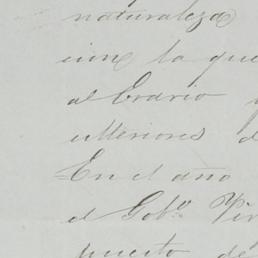 naturaleza
cion la que
al Erario
ulteriores d
=En el año
el Gobº. Vir
puerto de